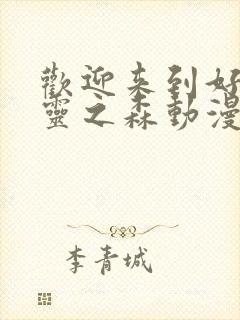 歡迎来到好
靈之森動漫
李青城